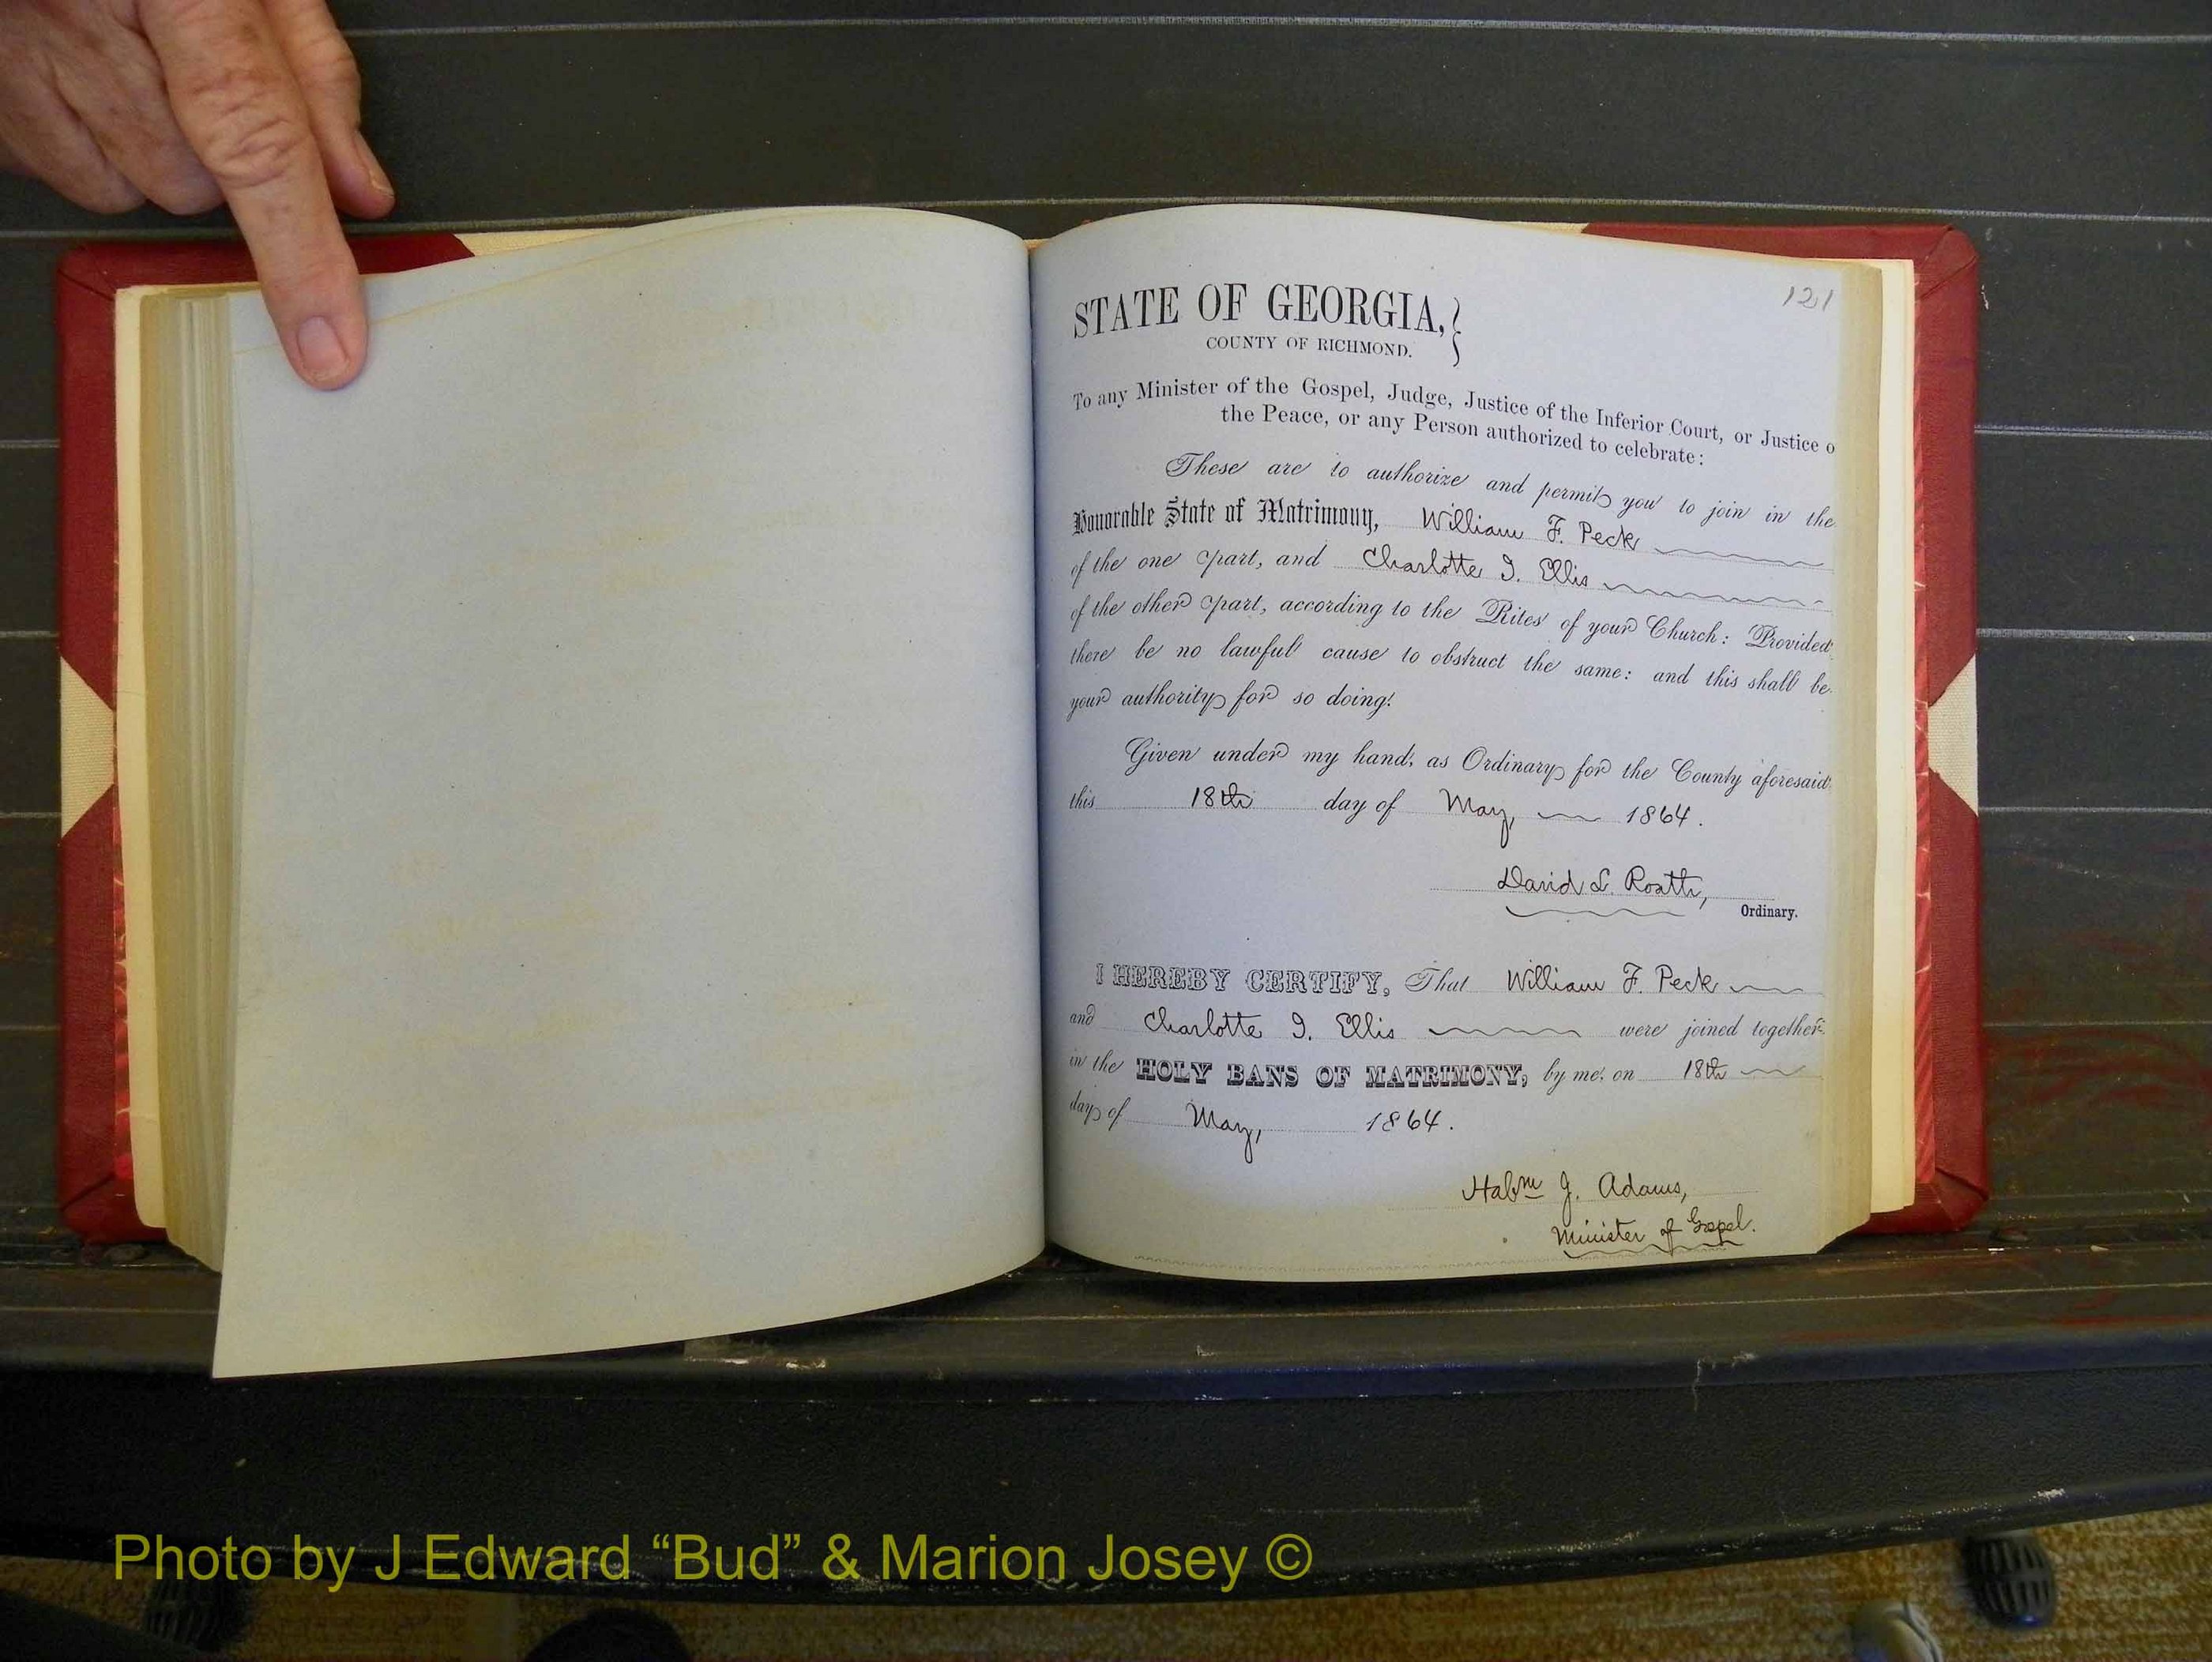 121
STATE OF GEORGIA,
COUNTY OF RICHMOND.
To any Minister of the Gospel, Judge, Justice of the Inferior Court, or Justice o
the Peace, or any Person authorized to celebrate:
These are to authorize and permit you to join in the
Honorable State of Matrimony, William F. Peck
of the one part, and Charlotte I. Ellis
of the other part, according to the Rites of your Church: Provided
there be no lawful cause to obstruct the same: and this shall be
your authority for so doing.
Given under my hand, as Ordinary for the County aforesaid
this 18th day of May, 1864.
David L. Roath,
Ordinary.
I HEREBY CERTIFY, That William F. Peck
and Charlotte I. Ellis were joined together
in the HOLY BANS OF MATRIMONY, by me, on 18th
day of May, 1864.
J. Adams,
Minister of Gospel.
Photo by J Edward “Bud” & Marion Josey ©